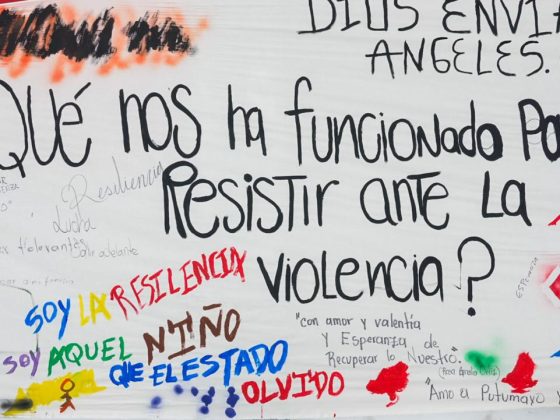 DIOS ENVIA
ANGELES.
QUÉ nos ha funcionado Pa
RESISTIR ANTE LA
VIOLENCIA?
Resiliencia
Lucha
Tolerantes
Salir adelante
ESPERANZA
SOY LA RESILENCIA
SOY AQUEL NIÑO
QUE EL ESTADO
OLVIDO
"con amor y valentía
y Esperanza de
Recuperar lo Nuestro."
"Amo el Putumayo